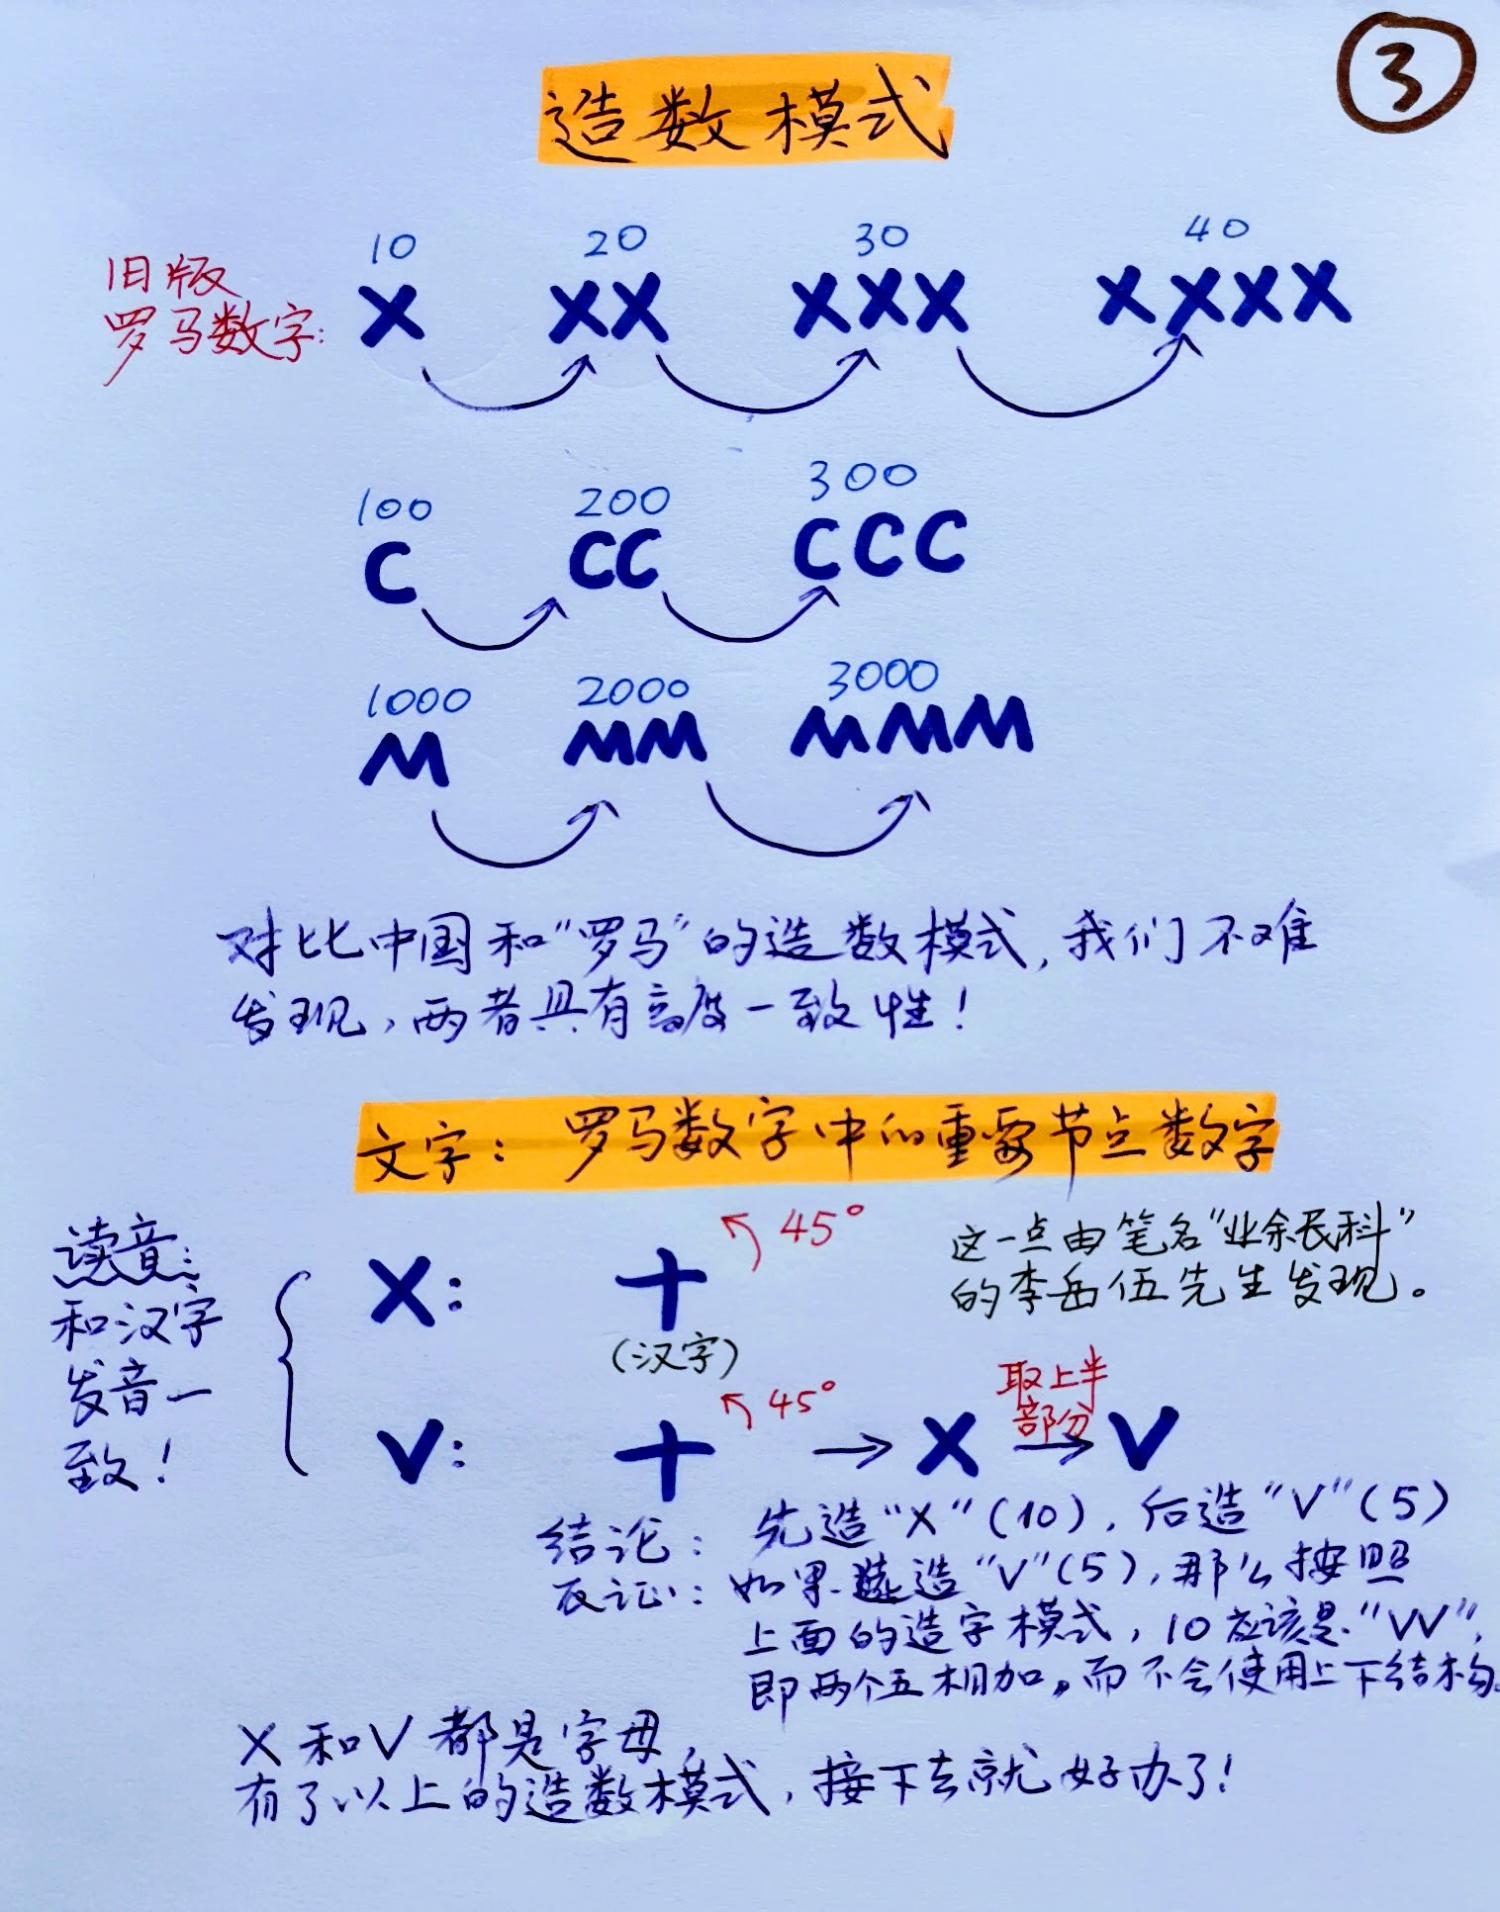 ③
造数模式
10 20 30 40
旧版
罗马数字: X XX XXX XXXX
100 200 300
C CC CCC
1000 2000 3000
M MM MMM
对比中国和"罗马"的造数模式,我们不难
发现,两者具有高度一致性!
文字: 罗马数字中的重要节点数字
读音:
和汉字
发音一
致!
X: 十 45°
(汉字)
这一点由笔名"业余民科"
的李岳伍先生发现。
V: 十 45° → X 取上半
部分 → V
结论: 先造"X"(10),后造"V"(5)
反证: 如果造"V"(5),那么按照
上面的造字模式,10应该是"VV",
即两个五相加。而不会使用上下结构。
X和V都是字母,
有了以上的造数模式,接下去就好办了!